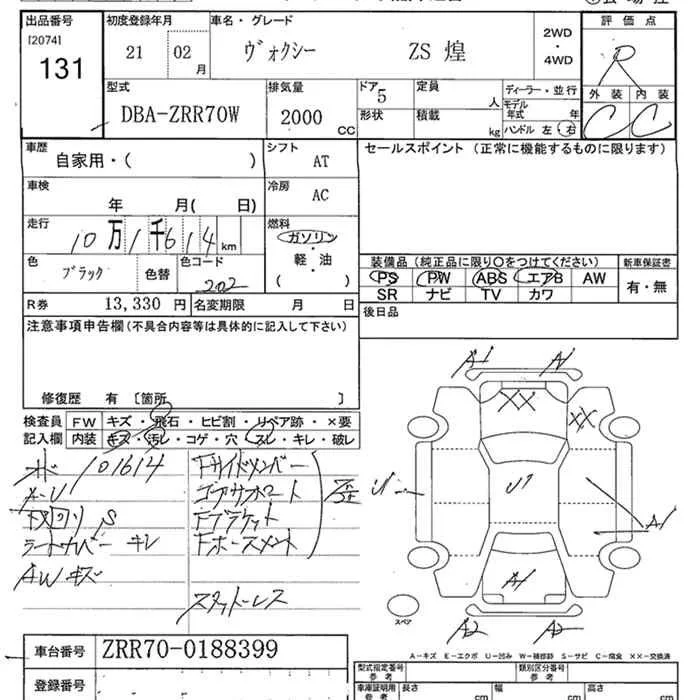 出品番号 初度登録年月 車名・グレード 評価点
[2074]
131 21 02月 ヴォクシー ZS 煌 2WD・4WD R
型式 排気量 ドア 定員 ディーラー・並行 外装 内装
DBA-ZRR70W 2000 CC 5 人 モデル年式 年 C C
形状 積載 kg ハンドル 左・右
車歴 シフト セールスポイント (正常に機能するものに限ります)
自家用・( ) AT
車検 冷房
年 月( 日) AC
走行 燃料
10万1千614km ガソリン
軽・油
( )
色 色替 色コード 装備品(純正品に限り○をつけてください) 新車保証書
ブラック 202 PS PW ABS エアB AW 有・無
SR ナビ TV カワ
R券 13,330 円 名変期限 月 日 後日品
注意事項申告欄(不具合内容等は具体的に記入して下さい)
修復歴 有 〔箇所 〕
検査員 FW キズ・飛石・ヒビ割・リペア跡・×要
記入欄 内装 キズ・汚レ・コゲ・穴・スレ・キレ・破レ
101614 Fサイドメンバー
コアサポート
下回り S Fブラケット
キレ Fホースメント
AW キズ
スタットレス
A1 A1
XX XX
U U1 A1
A1
A2 A2
スペア
A-キズ E-エクボ U-凹み W-補修跡 S-サビ C-腐食 XX-交換済
車台番号 ZRR70-0188399
登録番号
型式指定番号 参考 類別区分番号 参考
車庫証明用 参考 長さ cm 幅 cm 高さ cm